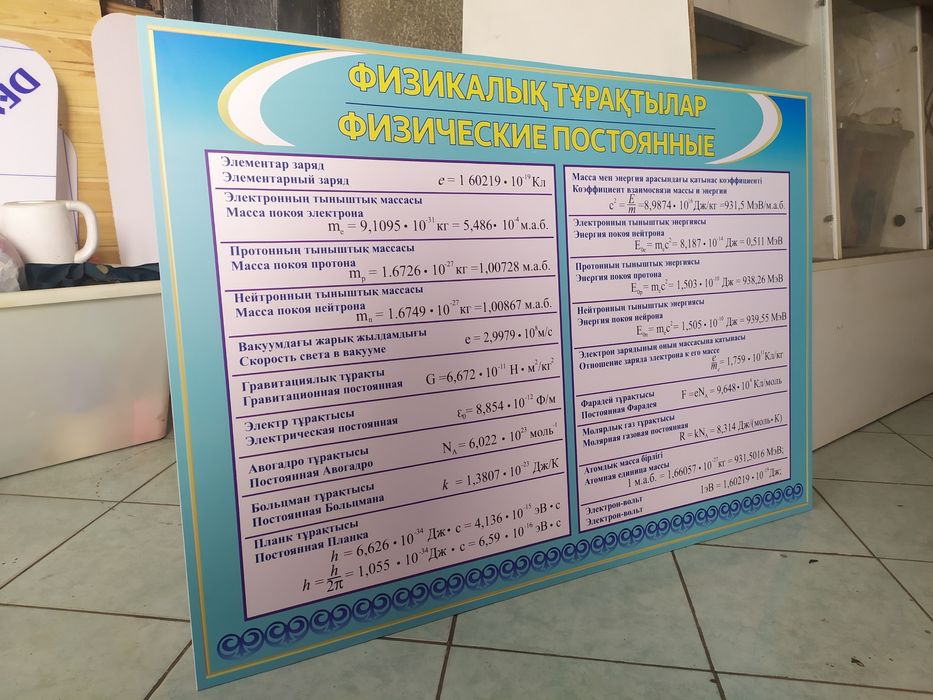 ФИЗИКАЛЫҚ ТҰРАҚТЫЛАР
ФИЗИЧЕСКИЕ ПОСТОЯННЫЕ
Элементар заряд
Элементарный заряд e = 1 60219 • 10⁻¹⁹ Кл
Электронның тыныштық массасы
Масса покоя электрона
mₑ = 9,1095 • 10⁻³¹ кг = 5,486• 10⁻⁴ м.а.б.
Протонның тыныштық массасы
Масса покоя протона
mₚ = 1.6726 • 10⁻²⁷ кг =1,00728 м.а.б.
Нейтронның тыныштық массасы
Масса покоя нейтрона
mₙ = 1.6749 • 10⁻²⁷ кг =1,00867 м.а.б.
Вакуумдағы жарық жылдамдығы
Скорость света в вакууме e = 2,9979 • 10⁸м/с
Гравитациялық тұрақты
Гравитационная постоянная G =6,672 • 10⁻¹¹ Н • м²/кг²
Электр тұрақтысы
Электрическая постоянная ε₀= 8,854 • 10⁻¹² Ф/м
Авогадро тұрақтысы
Постоянная Авогадро N_A= 6,022 • 10²³ моль⁻¹
Больцман тұрақтысы
Постоянная Больцмана k = 1,3807 • 10⁻²³ Дж/К
Планк тұрақтысы
Постоянная Планка
h = 6,626 • 10⁻³⁴ Дж • с = 4,136 • 10⁻¹⁵ эВ • с
h = h/2π = 1,055 • 10⁻³⁴Дж • с = 6,59 • 10⁻¹⁶ эВ • с
Масса мен энергия арасындағы қатынас коэффициенті
Коэффициент взаимосвязи массы и энергии
c² = E/m =8,9874 • 10¹⁶Дж/кг =931,5 МэВ/м.а.б.
Электронның тыныштық энергиясы
Энергия покоя нейтрона
E₀ₑ= mₑc²= 8,187 • 10⁻¹⁴ Дж = 0,511 МэВ
Протонның тыныштық энергиясы
Энергия покоя протона
E₀ₚ= mₑc²= 1,503 • 10⁻¹⁰ Дж = 938,26 МэВ
Нейтронның тыныштық энергиясы
Энергия покоя нейрона
E₀ₙ= mₑc²= 1,505 • 10⁻¹⁰ Дж = 939,55 МэВ
Электрон зарядының оның массасына қатынасы
Отношение заряда электрона к его массе
e/mₑ = 1,759 • 10¹¹Кл/кг
Фарадей тұрақтысы
Постоянная Фарадея F =eN_A = 9,648• 10⁴ Кл/моль
Молярлық газ тұрақтысы
Молярная газовая постоянная R = kN_A = 8,314 Дж/(моль • К)
Атомдық масса бірлігі
Атомная единица массы
1 м.а.б. = 1,66057 • 10⁻²⁷кг = 931,5016 МэВ;
Электрон-вольт
Электрон-вольт 1эВ = 1,60219 • 10⁻¹⁹Дж;